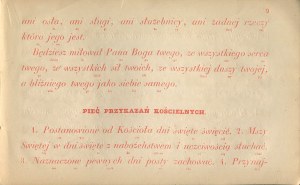 9
ani osła, ani sługi, ani służebnicy, ani żadnej rzeczy
która jego jest.
Będziesz miłował Pana Boga twego, ze wszystkiego serca
twego, ze wszystkich sił twoich, ze wszystkiej duszy twojej,
a bliźniego twego jako siebie samego.
PIĘĆ PRZYKAZAŃ KOŚCIELNYCH.
1. Postanowione od Kościoła dni święte święcić. 2. Mszy
Świętej w dni święte z nabożeństwem i uczciwością słuchać.
3. Naznaczone pewnych dni posty zachować. 4. Przynaj-